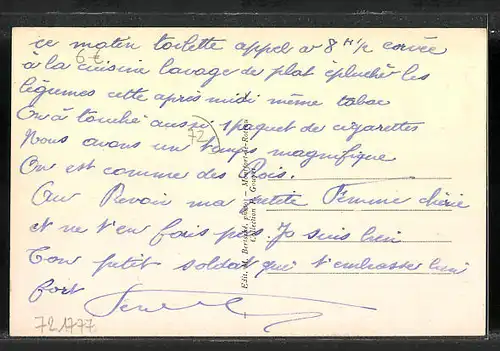 ce matin toilette appel a 8 H 1/2 corvée
6 €
à la cuisine lavage de plat épluché les
légumes cette après midi même tabac
On à touché aussi 1 paquet de cigarettes
72
Nous avons un temps magnifique
On est comme des Rois.
Au Revoir ma petite Femme chérie
et ne t'en fais pas. Je suis bien
Ton petit soldat qui t'embrasse bien
fort
721777
Collection P. Gouget